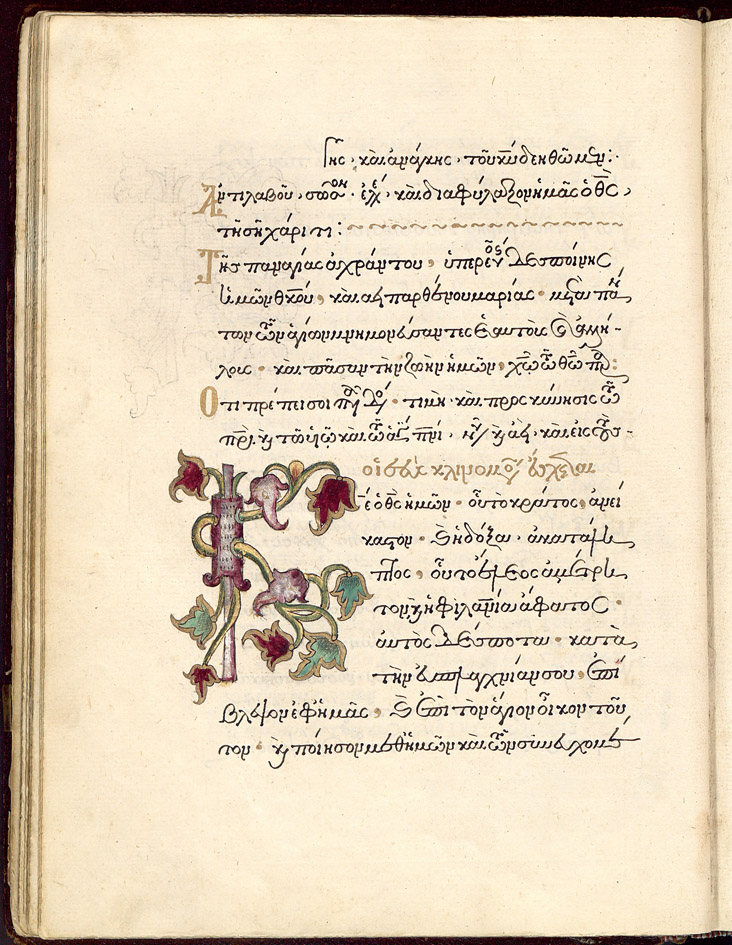 γῆς· καὶ ἀνάγκης· τοῦ κυ δεηθῶμεν:
Ἀντιλαβοῦ· σῶσον· ἐλέησον· καὶ διαφύλαξον ἡμᾶς ὁ θς,
τῇ σῇ χάριτι:
Τῆς παναγίας ἀχράντου, ὑπερευ δεσποίνης
ἡμῶν θκου, καὶ ἀειπαρθένου μαρίας· μετὰ πάν
των τῶν ἁγίων μνημονεύσαντες ἑαυτοὺς καὶ ἀλλή-
λους· καὶ πᾶσαν τὴν ζωὴν ἡμῶν, χω τῶ θω παρ:
Ὅτι πρέπει σοι πᾶσα δόξα· τιμὴ· καὶ προσκύνησις τῶ
πρι, καὶ τῶ υἱῶ καὶ τῶ ἁγίω πνι, νῦν καὶ ἀεὶ, καὶ εἰς τοὺς-
Κύριε ὁ θς ἡμῶν· οὗ τὸ κράτος, ἀνεί
καστον· καὶ ἡ δόξα, ἀκατάλη
πτος, οὗ τὸ ἔλεος ἀμέτρη
τον, καὶ ἡ φιλανία ἄφατος·
αὐτὸς δέσποτα· κατὰ
τὴν εὐσπλαγχνίαν σου, ἐπί
βλεψον ἐφ' ἡμᾶς, καὶ ἐπὶ τὸν ἅγιον οἶκον τοῦ
τον· καὶ ποίησον μεθ' ἡμῶν καὶ τῶν συνευχομέ